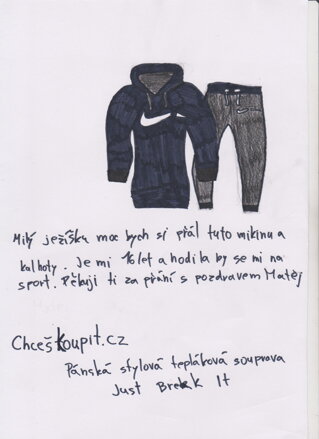 Milý ježíšku moc bych si přál tuto mikinu a
kalhoty. Je mi 16 let a hodila by se mi na
sport. Děkuji ti za přání s pozdravem Matěj
Chceš Koupit.cz
Pánská stylová tepláková souprava
Just Break It